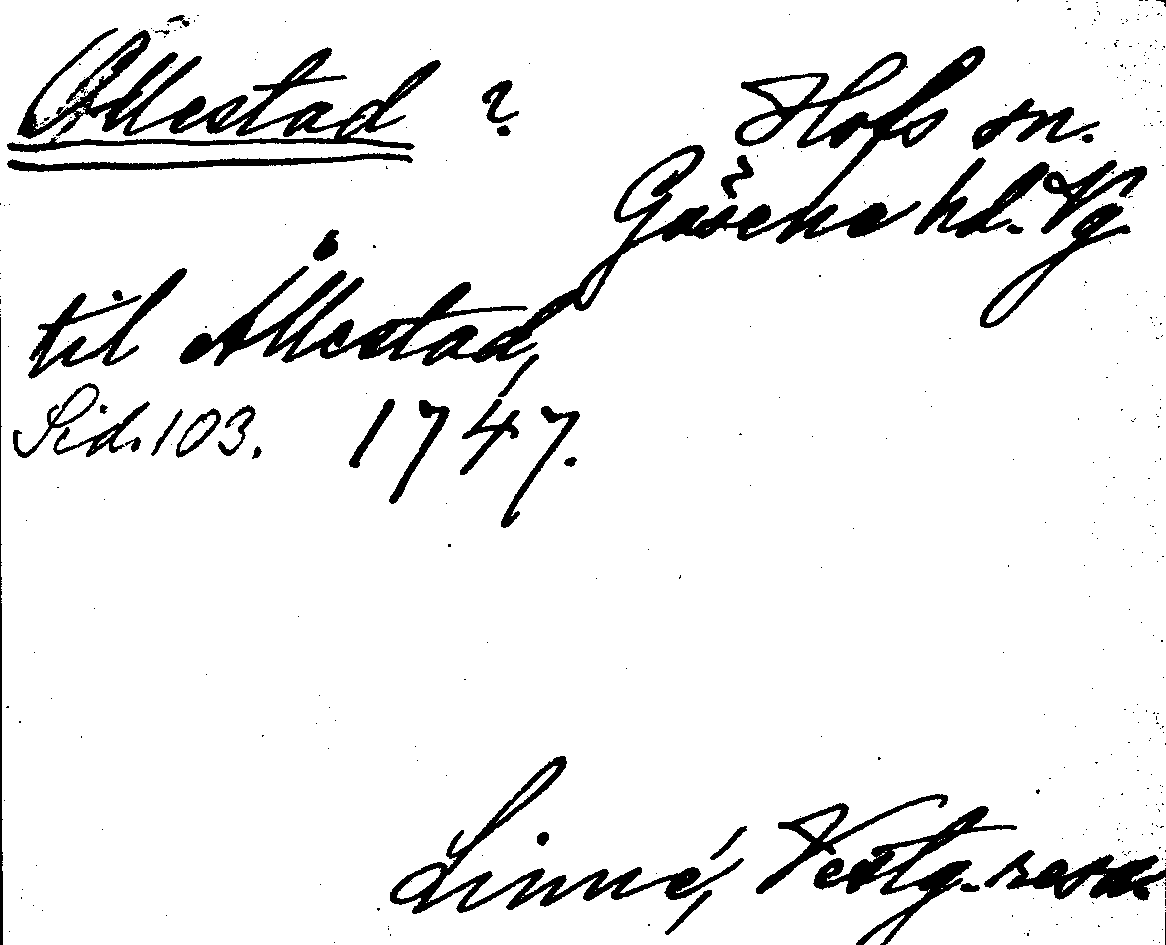 Ollestad ? Hofs sn.
Gäsene hd. Vg.
til Ållestad,
Sid. 103. 1747.
Linné, Vestg. resa.